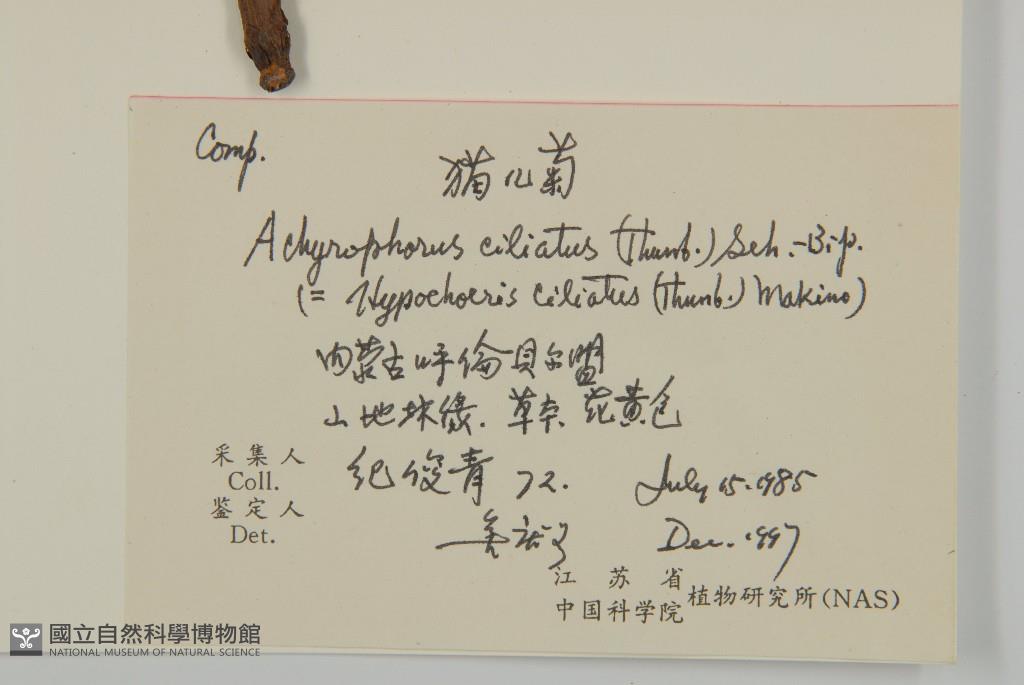 Comp.
猫儿菊
Achyrophorus ciliatus (Thunb.) Sch.-Bip.
(= Hypochoeris ciliatus (Thunb.) Makino)
内蒙古呼倫貝尔盟
山地林缘. 草本. 花黄色
采集人 纪俊青 72. July 15. 1985
Coll.
鉴定人
Det. Dec. 1997
江苏省
中国科学院 植物研究所(NAS)
國立自然科學博物館
NATIONAL MUSEUM OF NATURAL SCIENCE